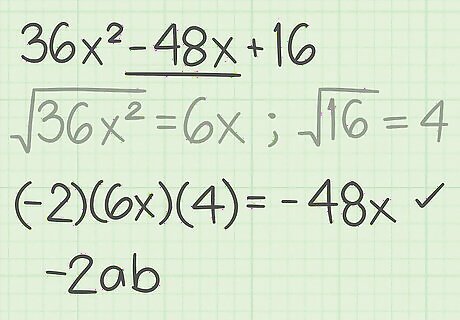 36x² - 48x + 16
√36x² = 6x ; √16 = 4
(-2)(6x)(4) = -48x ✓
-2ab